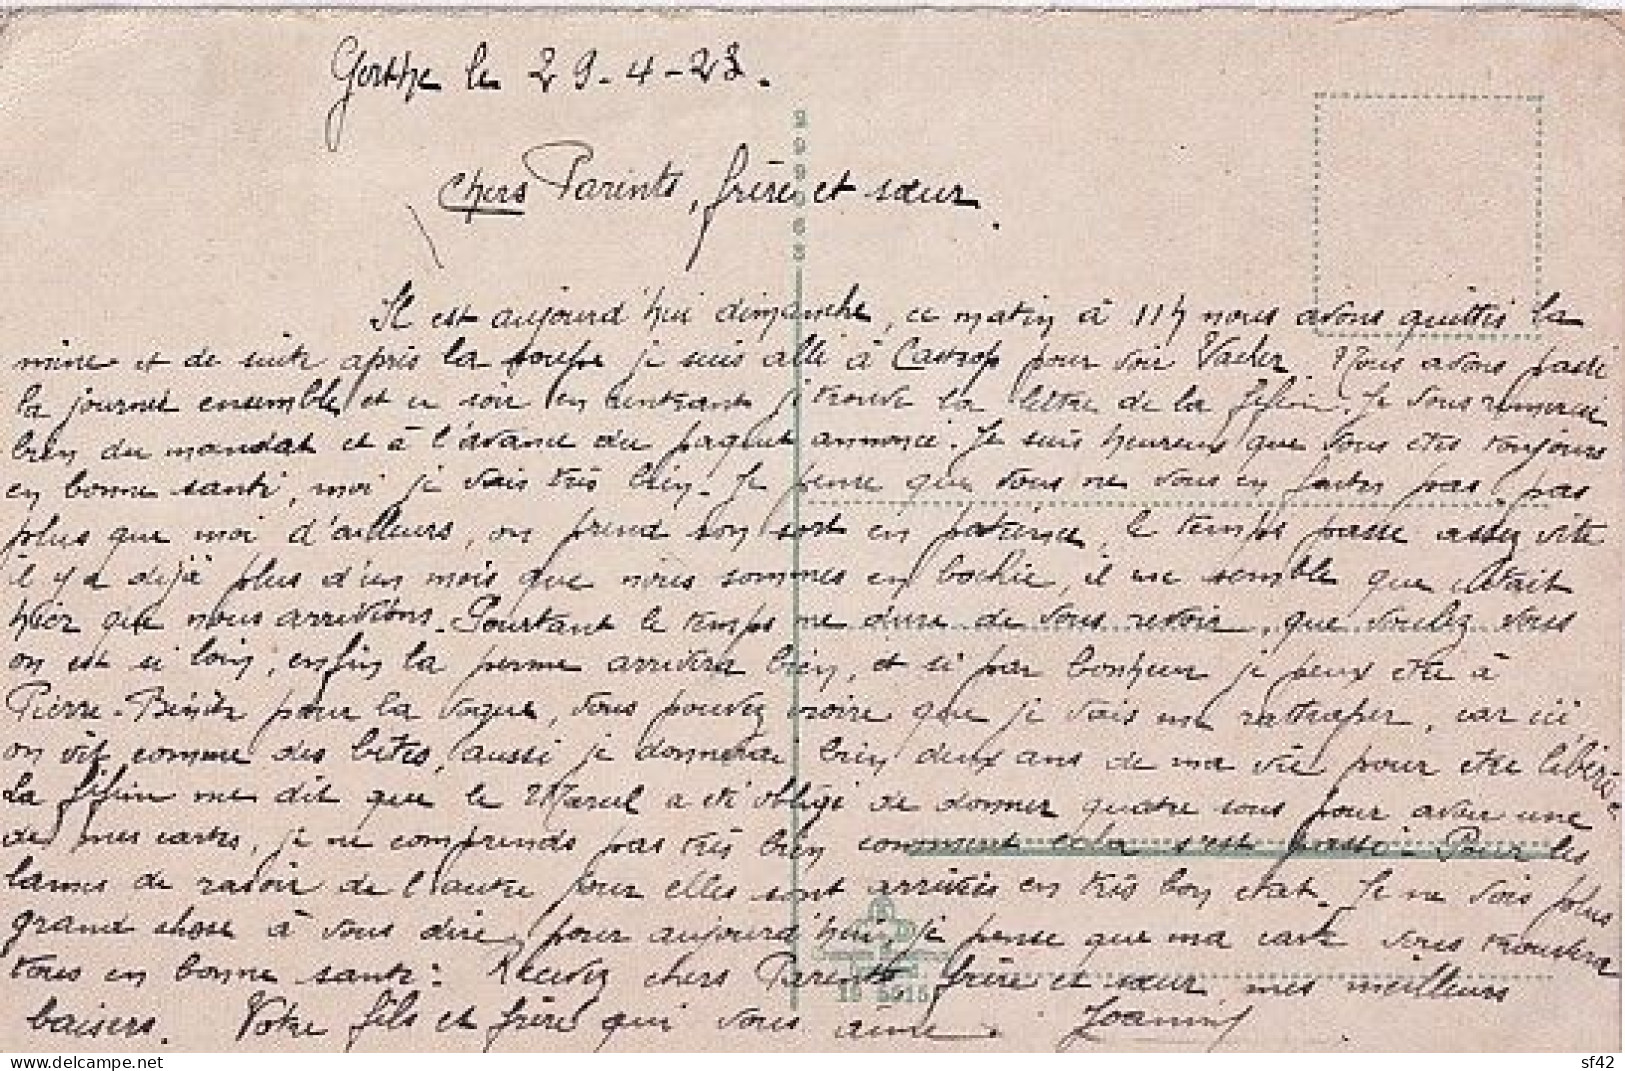 Gerthe le 29-4-23.
Chers Parents, frère et sœur.
Il est aujourd'hui dimanche, ce matin à 11h nous avons quittés la
mine et de suite après la soupe je suis allé à Castrop pour voir Vacher. Nous avons passé
la journée ensemble et ce soir en rentrant j'trouve la lettre de la Fifine. Je vous remercie
bien du mandat et à l'avance du paquet annoncé. Je suis heureux que vous êtes toujours
en bonne santé, moi je vais très bien. Je pense que vous ne vous en faites pas, pas
plus que moi d'ailleurs, on prend son sort en patience, le temps passe assez vite
il y a déjà plus d'un mois que nous sommes en bochie, il me semble que c'était
hier que nous arrivions. Pourtant le temps me dure de vous revoir, que voulez vous
on est si loin, enfin la perme arrivera bien, et si par bonheur je peux être à
Pierre-Bénite pour la vogue, vous pouvez croire que je vais me rattraper, car ici,
on vit comme des bêtes, aussi je donnerai bien deux ans de ma vie pour être libéré.
La fifine me dit que le Marcel a été obligé de donner quatre sous pour avoir une
de mes cartes, je ne comprends pas très bien comment cela s'est passé. Pour les
lames de rasoir de l'autre jour elles sont arrivées en très bon état. Je ne vois plus
grand chose à vous dire pour aujourd'hui, je pense que ma carte vous trouvera
tous en bonne santé. Recevez chers Parents, frère et sœur, mes meilleurs
baisers. Votre fils et frère qui vous aime. Joanny
sf42